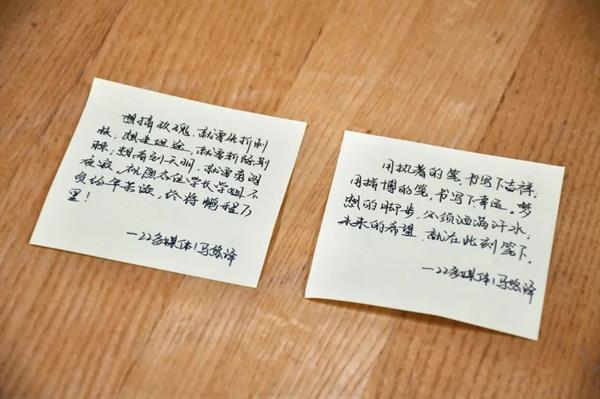 想摘玫瑰,就要先折刺
枝;想走坦途,就要斩除荆
棘;想看到天明,就要勇闯
夜寂。祝愿各位学长学姐不
负韶年芳波,终将鹏程万
里!
—22多媒体1马悠泽
用执着的笔,书写下吉祥;
用拼博的笔,书写下幸运。梦
想的脚步,必须洒满汗水,
未来的希望,就在此刻笔下。
—22多媒体1马悠泽